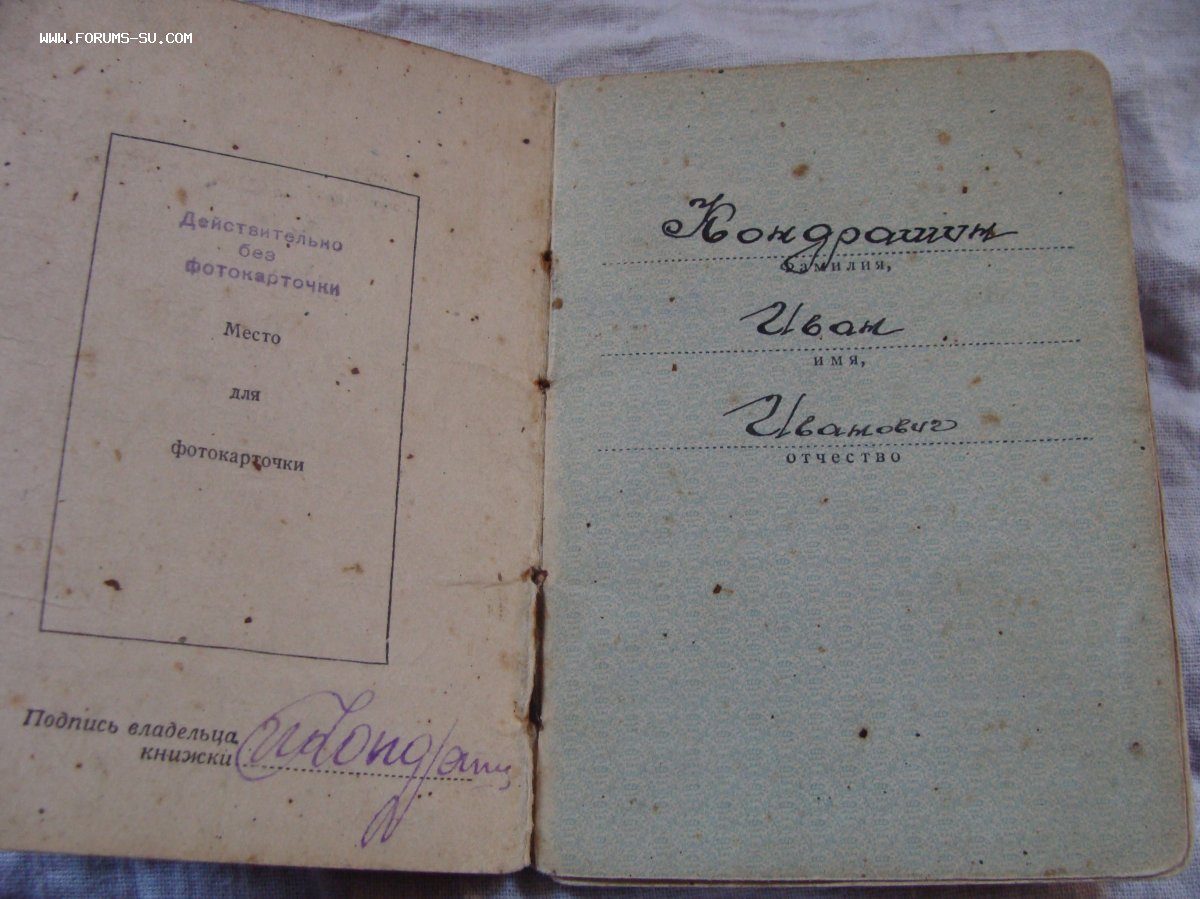 WWW.FORUMS-SU.COM
Действительно
без
фотокарточки
Место
для
фотокарточки
Подпись владельца
книжки
Кондрашин
фамилия,
Иван
имя,
Иванович
отчество